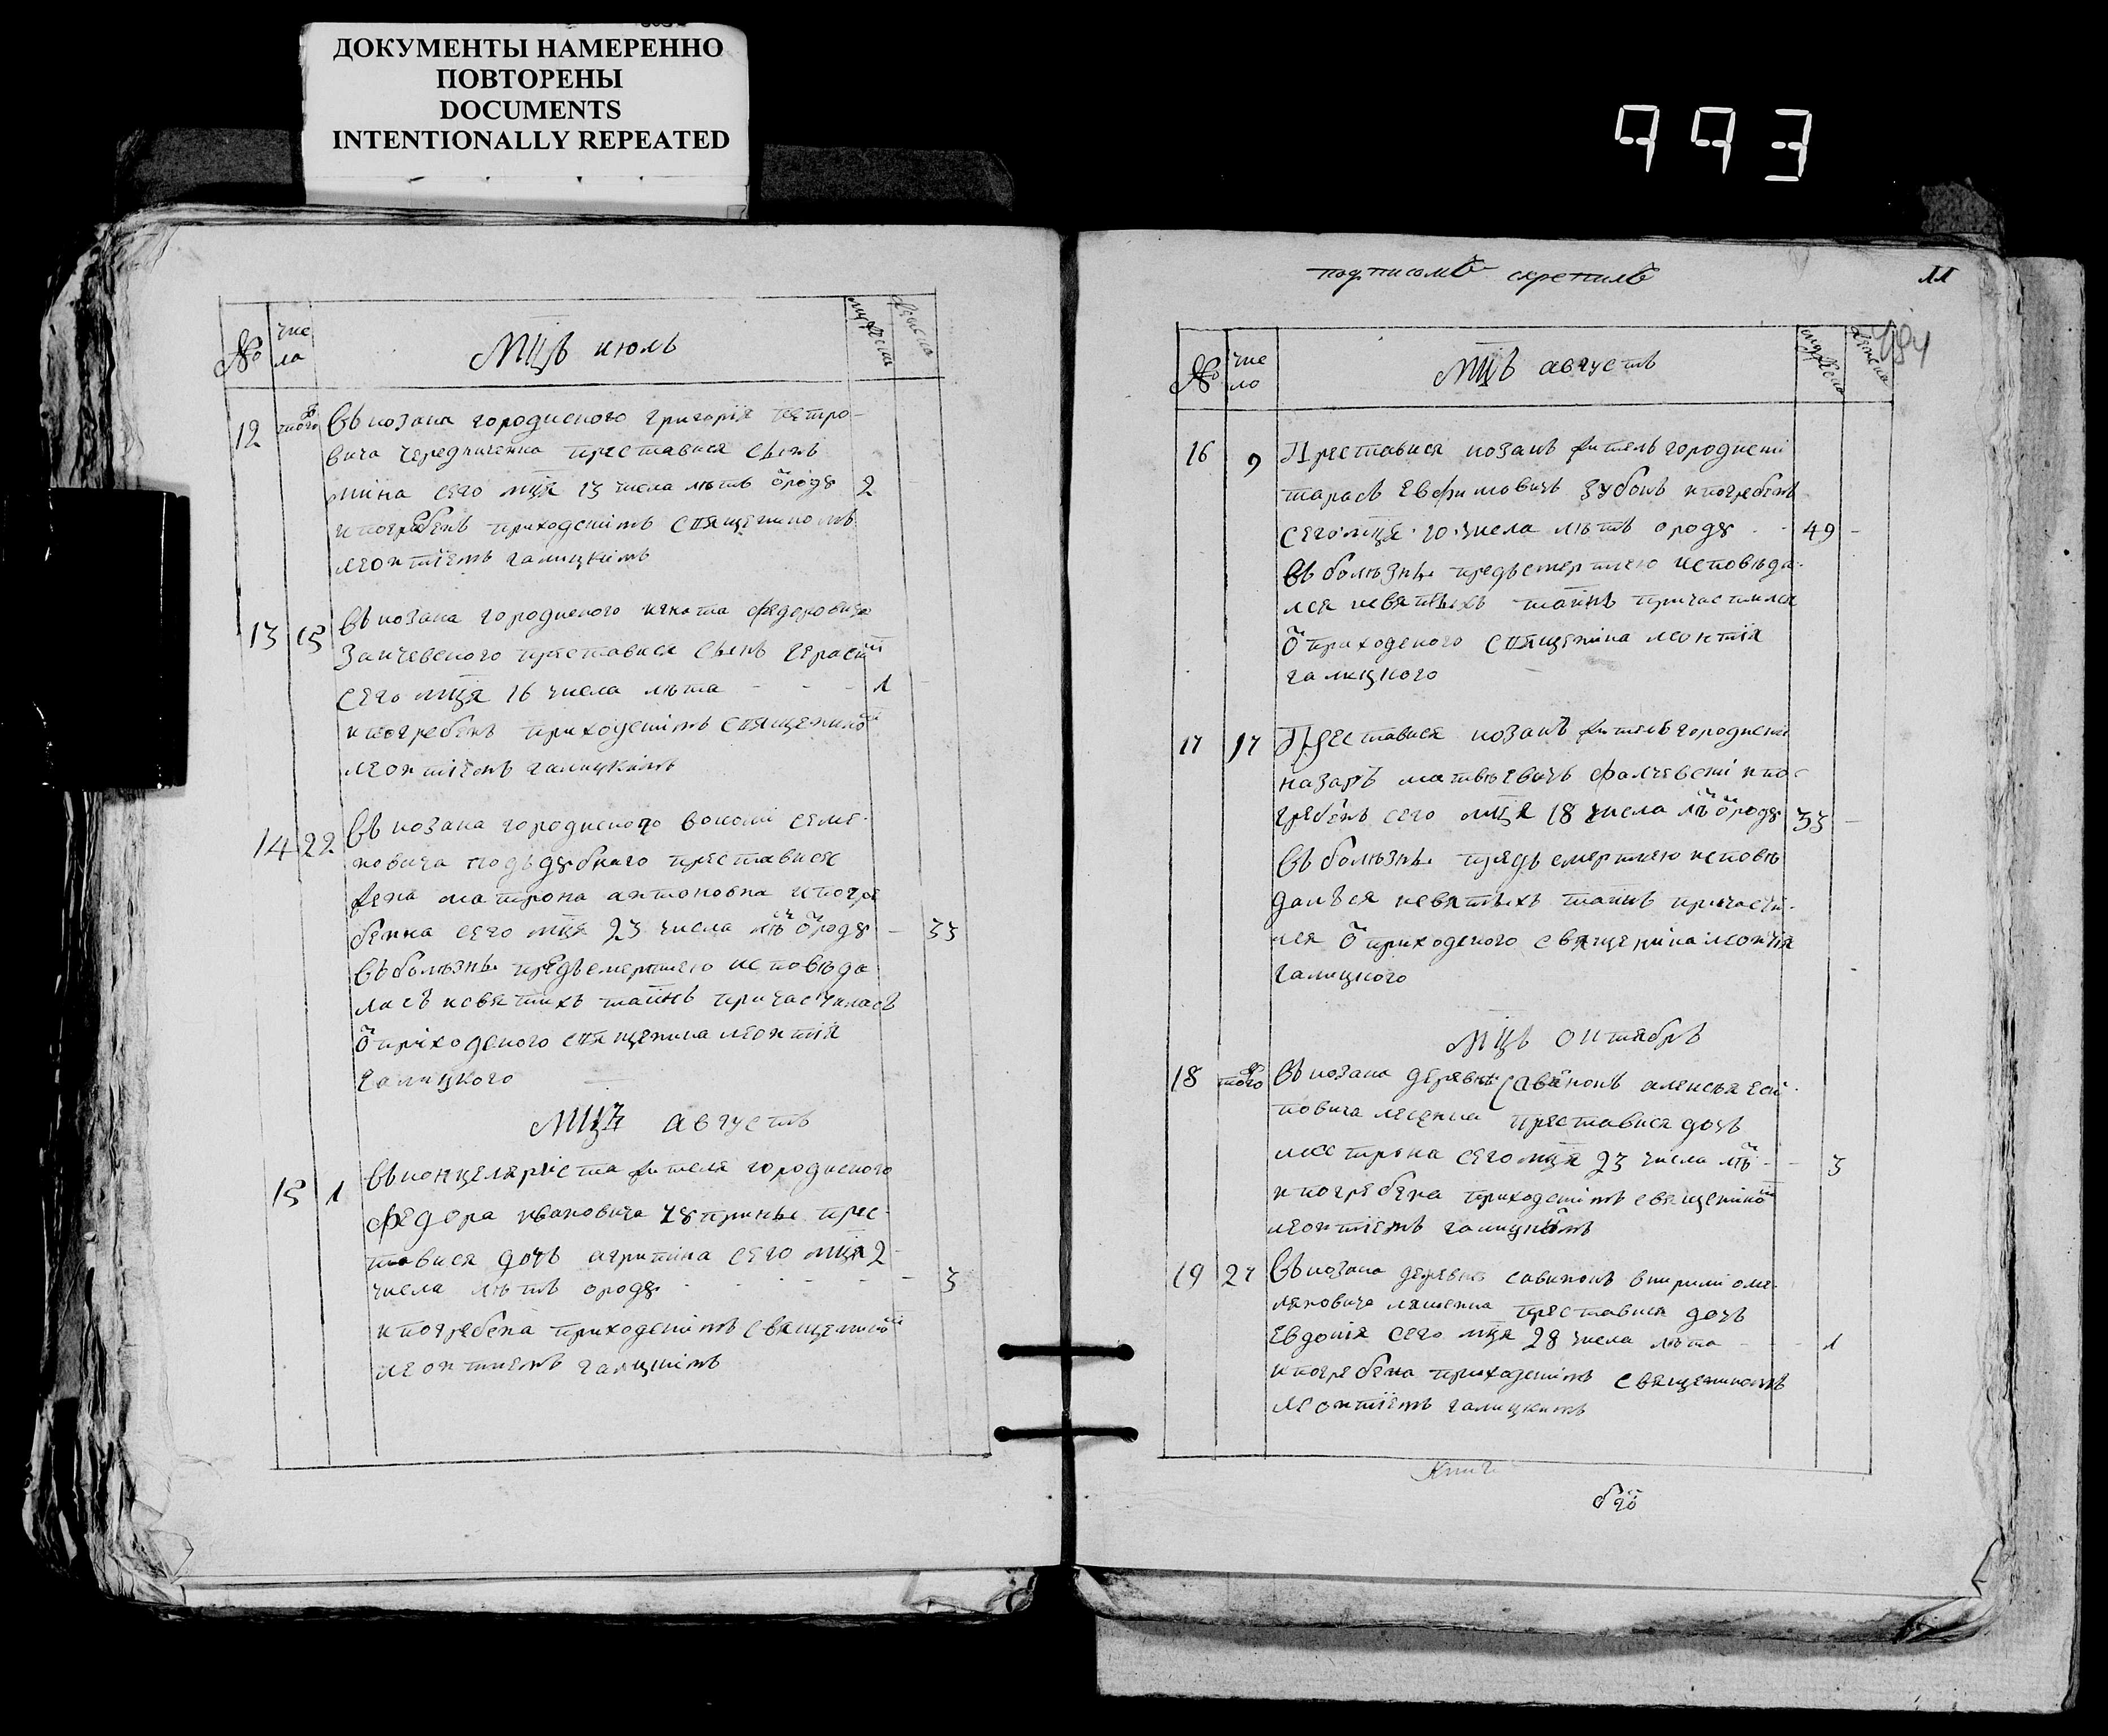 ДОКУМЕНТЫ НАМЕРЕННО
ПОВТОРЕНЫ
DOCUMENTS
INTENTIONALLY REPEATED
993
№ чис ла Мцъ июль мужеска женска
12 того Въ козака городиского григорія петро-
вича чередниченка преставися сынъ
мина сего мця 13 числа лѣтъ ѿроду 2
и погребенъ приходскімъ священикомъ
леонтіемъ галицкимъ
13 15 Въ козака городиского игната федоровича
Заичевского преставися сынъ герасим
сего мця 16 числа лѣта - - - 1
и погребенъ приходскімъ священико
леонтіемъ галицкимъ
14 22 Въ козака городиского семе-
новича поддубного преставися
жена матрона антоновна и погре
бенна сего мця 23 числа лѣ ѿроду - 33
Въ болѣзнь предъсмертнею исповѣда
лась и святихъ таинъ причастилась
ѿ приходского священика леонтія
галицкого
Мцъ августъ
15 1 Въ канцеляриста жителя городиского
федора ивановича преста-
вися дочь агрипина сего мця 2
числа лѣтъ ѿроду - - - 3
и погребена приходскімъ священико
леонтиемъ галицкімъ
подписомъ скрепилъ 11
484
№ чис ло Мцъ августъ мужеска женска
16 9 Преставися козакъ житель городискі
тарасъ Евфимовичъ зубокъ и погребенъ
сего мця 10 числа лѣтъ ѿроду - 49 -
Въ болѣзнь предъсмертнею исповѣда-
лся и святыхъ таинъ причастился
ѿ приходского священика леонтія
галицкого
17 17 Преставися козакъ житель городискі
назаръ матвѣевичъ фалчевскі и по-
гребенъ сего мця 18 числа лѣ ѿроду 33 -
Въ болѣзнь предъ смертнею исповѣ
дался и святыхъ таинъ причасти-
лся ѿ приходского священика леонтія
галицкого
Мцъ октябръ
18 того Въ козака деревнѣ Савинокъ алексѣя еси-
повича преставися дочь
сего мця 23 числа лѣ - - 3
и погребена приходскімъ священико
леонтіемъ галицкимъ
19 27 Въ козака деревнѣ савинокъ оме-
ляновича ляшенка преставися дочь
Евдокія сего мця 28 числа лѣта - - - 1
и погребена приходскімъ священикомъ
леонтіемъ галицкимъ